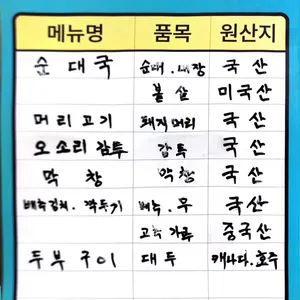 메뉴명 품목 원산지
순대국 순대.내장 국산
볼살 미국산
머리고기 돼지머리 국산
오소리감투 감투 국산
막창 막창 국산
배추김치.깍두기 배추.무 국산
고추가루 중국산
두부구이 대두 캐나다.호주